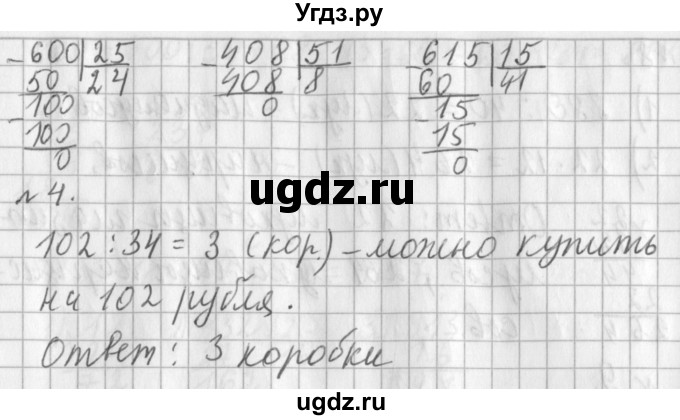 Угдз.ру
- 600 | 25   - 408 | 51   - 615 | 15
50 | 24   408 | 8   60 | 41
- 100   0   - 15
100   15
0   0
ugdz.ru
№ 4.
102 : 34 = 3 (кор.) – можно купить
на 102 рубля.
Ответ: 3 коробки
ugdz.ru